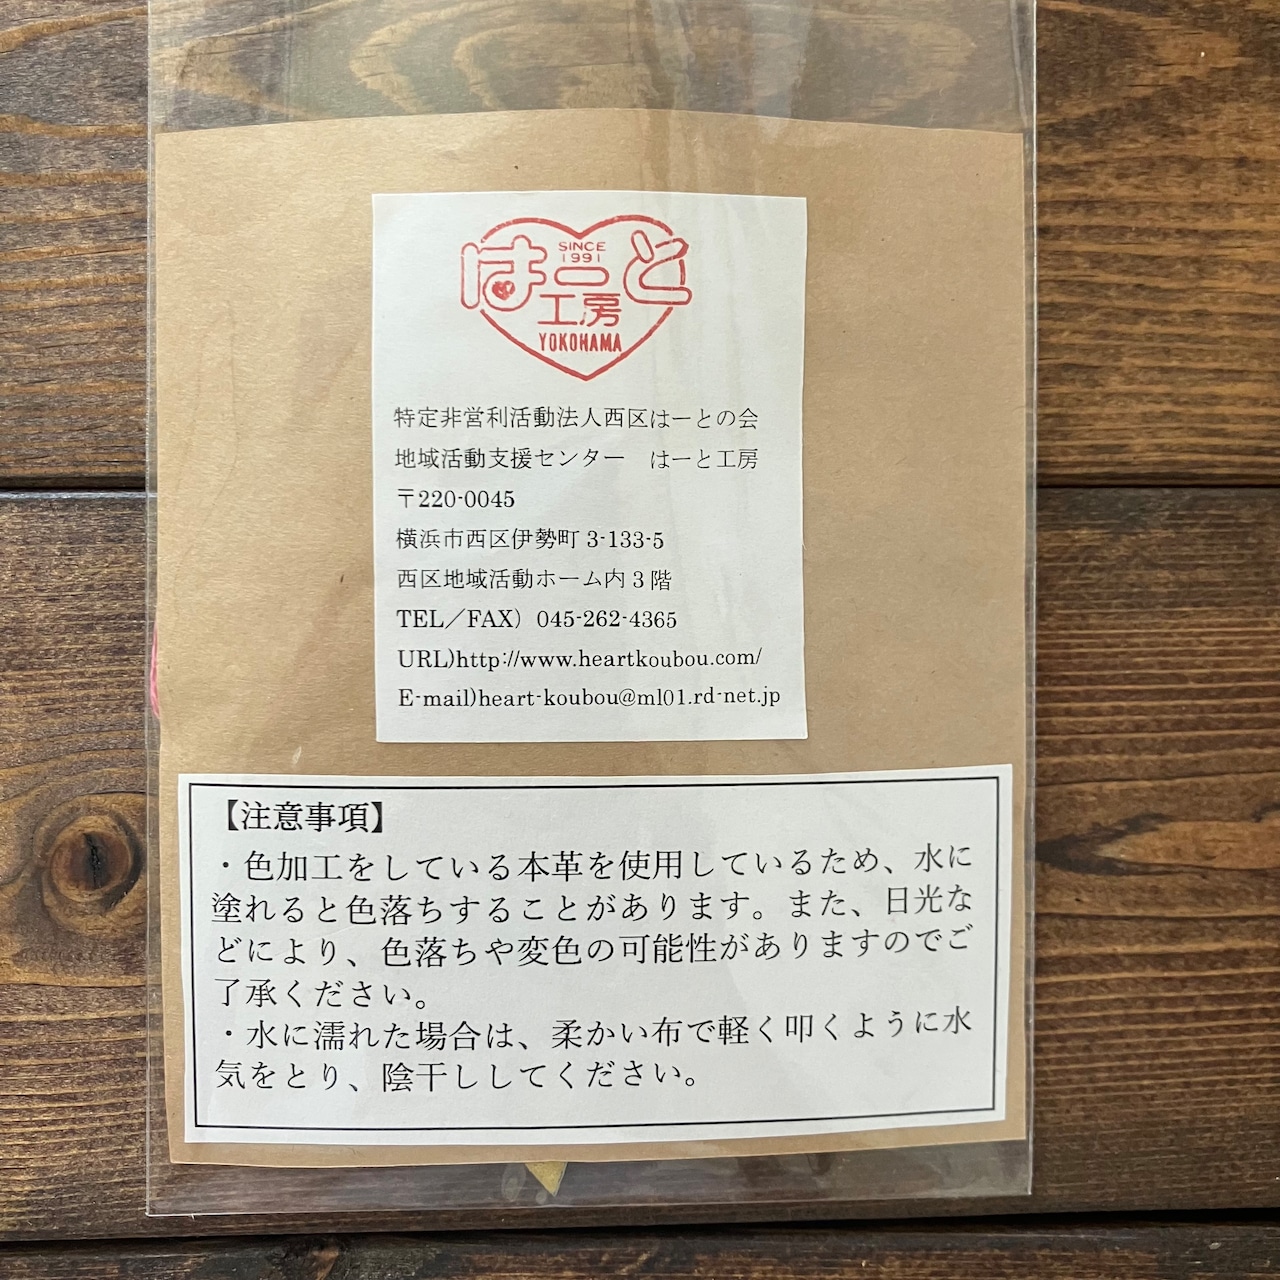 SINCE
1991
はーと
工房
YOKOHAMA
特定非営利活動法人西区はーとの会
地域活動支援センター　はーと工房
〒220-0045
横浜市西区伊勢町 3-133-5
西区地域活動ホーム内 3 階
TEL／FAX）045-262-4365
URL)http://www.heartkoubou.com/
E-mail)heart-koubou@ml01.rd-net.jp
【注意事項】
・色加工をしている本革を使用しているため、水に
塗れると色落ちすることがあります。また、日光な
どにより、色落ちや変色の可能性がありますのでご
了承ください。
・水に濡れた場合は、柔かい布で軽く叩くように水
気をとり、陰干ししてください。